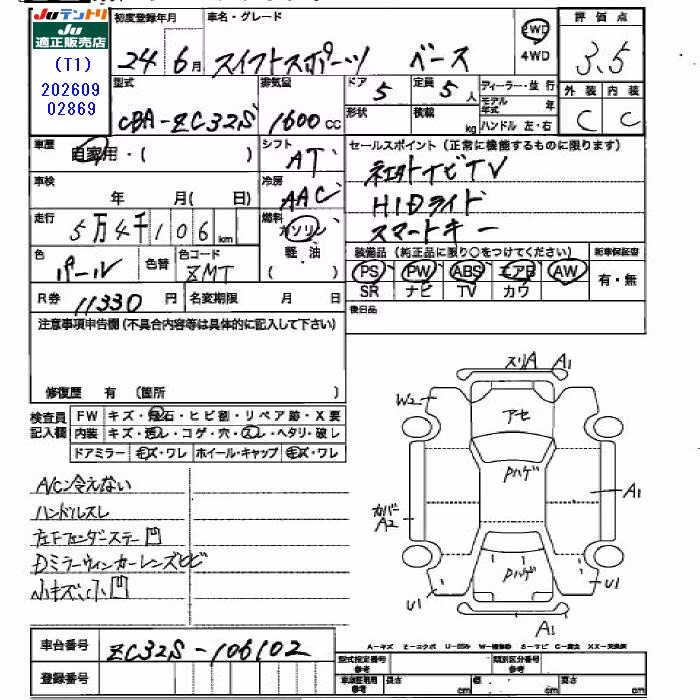 Juテントリ
Ju適正販売店
(T1)
202609
02869
初度登録年月 車名・グレード 2WD 4WD 評価点
24 6月 スイフトスポーツ ベース 3.5
型式 排気量 ドア 5 定員 5人 ディーラー・並行 外装 内装
CBA-ZC32S 1600cc 形状 積載 kg モデル年式 年 C C
ハンドル 左・右
車歴 自家用・( ) シフト AT セールスポイント (正常に機能するものに限ります)
社外ナビTV
車検 年 月( 日) 冷房 AAC HIDライト
スマートキー
走行 5万4千106km 燃料 ガソリン
軽油
( )
色 パール 色替 色コード ZMT
装備品 (純正品に限り○をつけてください) 新車保証書
PS PW ABS エアB AW 有・無
SR ナビ TV カワ
R券 11330円 名変期限 月 日 後日品
注意事項申告欄(不具合内容等は具体的に記入して下さい)
修復歴 有 (箇所 )
検査員記入欄 FW キズ・飛石・ヒビ割・リペア跡・X要
内装 キズ・汚レ・コゲ・穴・スレ・ヘタリ・破レ
ドアミラー キズ・ワレ ホイール・キャップ キズ・ワレ
A/C冷えない
ハンドルスレ
左Fフェンダーステー凹
Dミラーウィンカーレンズヒビ
小キズ小凹
スリA A1
W2
アセ
Pハゲ
カバー
A2
A1
Pハゲ
U1
U1
A1
車台番号 ZC32S-106102
登録番号
A-キズ E-エクボ U-凹み W-補修跡 S-サビ C-腐食 XX-交換済
型式指定番号 参考 類別区分番号 参考
車庫証明用 参考 長さ cm 幅 cm 高さ cm